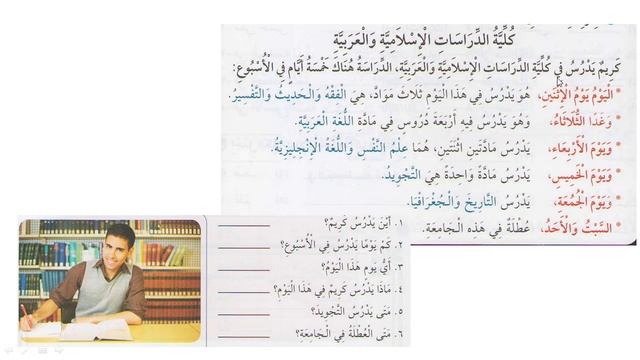 كُلِّيَّةُ الدِّرَاسَاتِ الْإِسْلَامِيَّةِ وَالْعَرَبِيَّةِ
كَرِيمٌ يَدْرُسُ فِي كُلِّيَّةِ الدِّرَاسَاتِ الْإِسْلَامِيَّةِ وَالْعَرَبِيَّةِ، الدِّرَاسَةُ هُنَاكَ خَمْسَةُ أَيَّامٍ فِي الْأُسْبُوعِ:
* الْيَوْمُ يَوْمُ الْإِثْنَيْنِ، هُوَ يَدْرُسُ فِي هَذَا الْيَوْمِ ثَلَاثَ مَوَادَّ، هِيَ الْفِقْهُ وَالْحَدِيثُ وَالتَّفْسِيرُ.
* وَغَدًا الثُّلَاثَاءُ، وَهُوَ يَدْرُسُ فِيهِ أَرْبَعَةَ دُرُوسٍ فِي مَادَّةِ اللُّغَةِ الْعَرَبِيَّةِ.
* وَيَوْمَ الْأَرْبِعَاءِ، يَدْرُسُ مَادَّتَيْنِ اثْنَتَيْنِ، هُمَا عِلْمُ النَّفْسِ وَاللُّغَةُ الْإِنْجِلِيزِيَّةُ.
* وَيَوْمَ الْخَمِيسِ، يَدْرُسُ مَادَّةً وَاحِدَةً هِيَ التَّجْوِيدُ.
* وَيَوْمَ الْجُمُعَةِ، يَدْرُسُ التَّارِيخَ وَالْجُغْرَافْيَا.
* السَّبْتُ وَالْأَحَدُ، عُطْلَةٌ فِي هَذِهِ الْجَامِعَةِ.
١. أَيْنَ يَدْرُسُ كَرِيمٌ؟
٢. كَمْ يَوْمًا يَدْرُسُ فِي الْأُسْبُوعِ؟
٣. أَيُّ يَومٍ هَذَا الْيَوْمُ؟
٤. مَاذَا يَدْرُسُ كَرِيمٌ فِي هَذَا الْيَوْمِ؟
٥. مَتَى يَدْرُسُ التَّجْوِيدَ؟
٦. مَتَى الْعُطْلَةُ فِي الْجَامِعَةِ؟